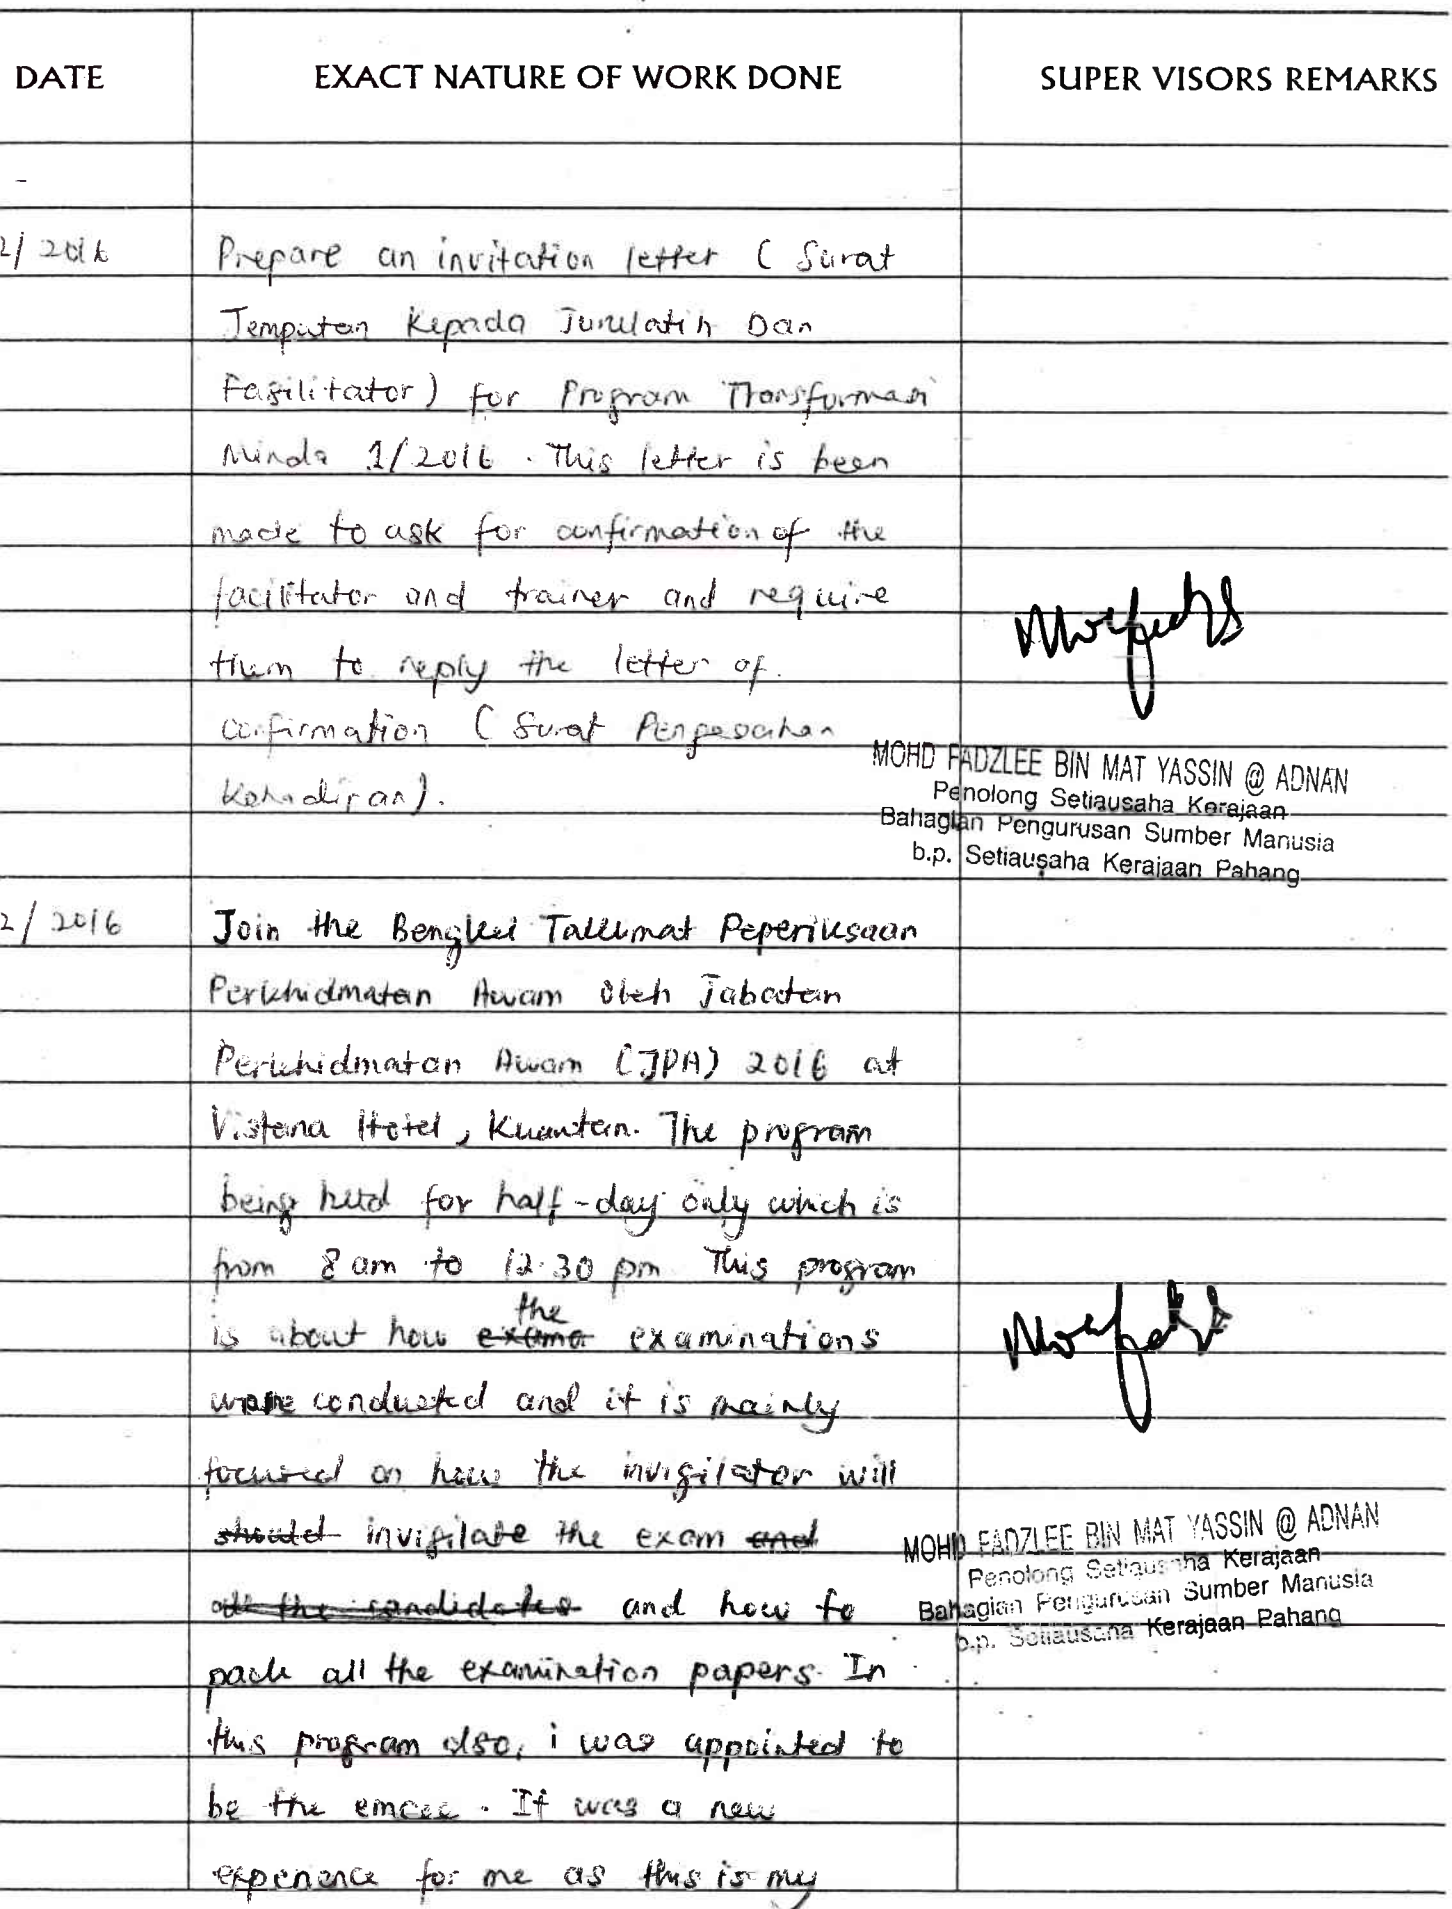 DATE EXACT NATURE OF WORK DONE SUPER VISORS REMARKS
2/2016 Prepare an invitation letter ( Surat
Jemputan Kepada Jurulatih Dan
Fasilitator) for Program Transformasi
Minda 1/2016 . This letter is been
made to ask for confirmation of the
facilitator and trainer and require
them to reply the letter of
confirmation ( Surat Pengesahan
Kehadiran).
MOHD FADZLEE BIN MAT YASSIN @ ADNAN
Penolong Setiausaha Kerajaan
Bahagian Pengurusan Sumber Manusia
b.p. Setiausaha Kerajaan Pahang
2/2016 Join the Bengkel Taklimat Peperiksaan
Perkhidmatan Awam Oleh Jabatan
Perkhidmatan Awam (JPA) 2016 at
Vistana Hotel, Kuantan. The program
being held for half-day only which is
from 8 am to 12.30 pm This program
the
is about how exama examinations
were conducted and it is mainly
focused on how the invigilator will
should invigilate the exam and
all the candidates and how to
pack all the examination papers. In
this program also, i was appointed to
be the emcee . It was a new
experience for me as this is my
MOHD FADZLEE BIN MAT YASSIN @ ADNAN
Penolong Setiausaha Kerajaan
Bahagian Pengurusan Sumber Manusia
b.p. Setiausaha Kerajaan Pahang